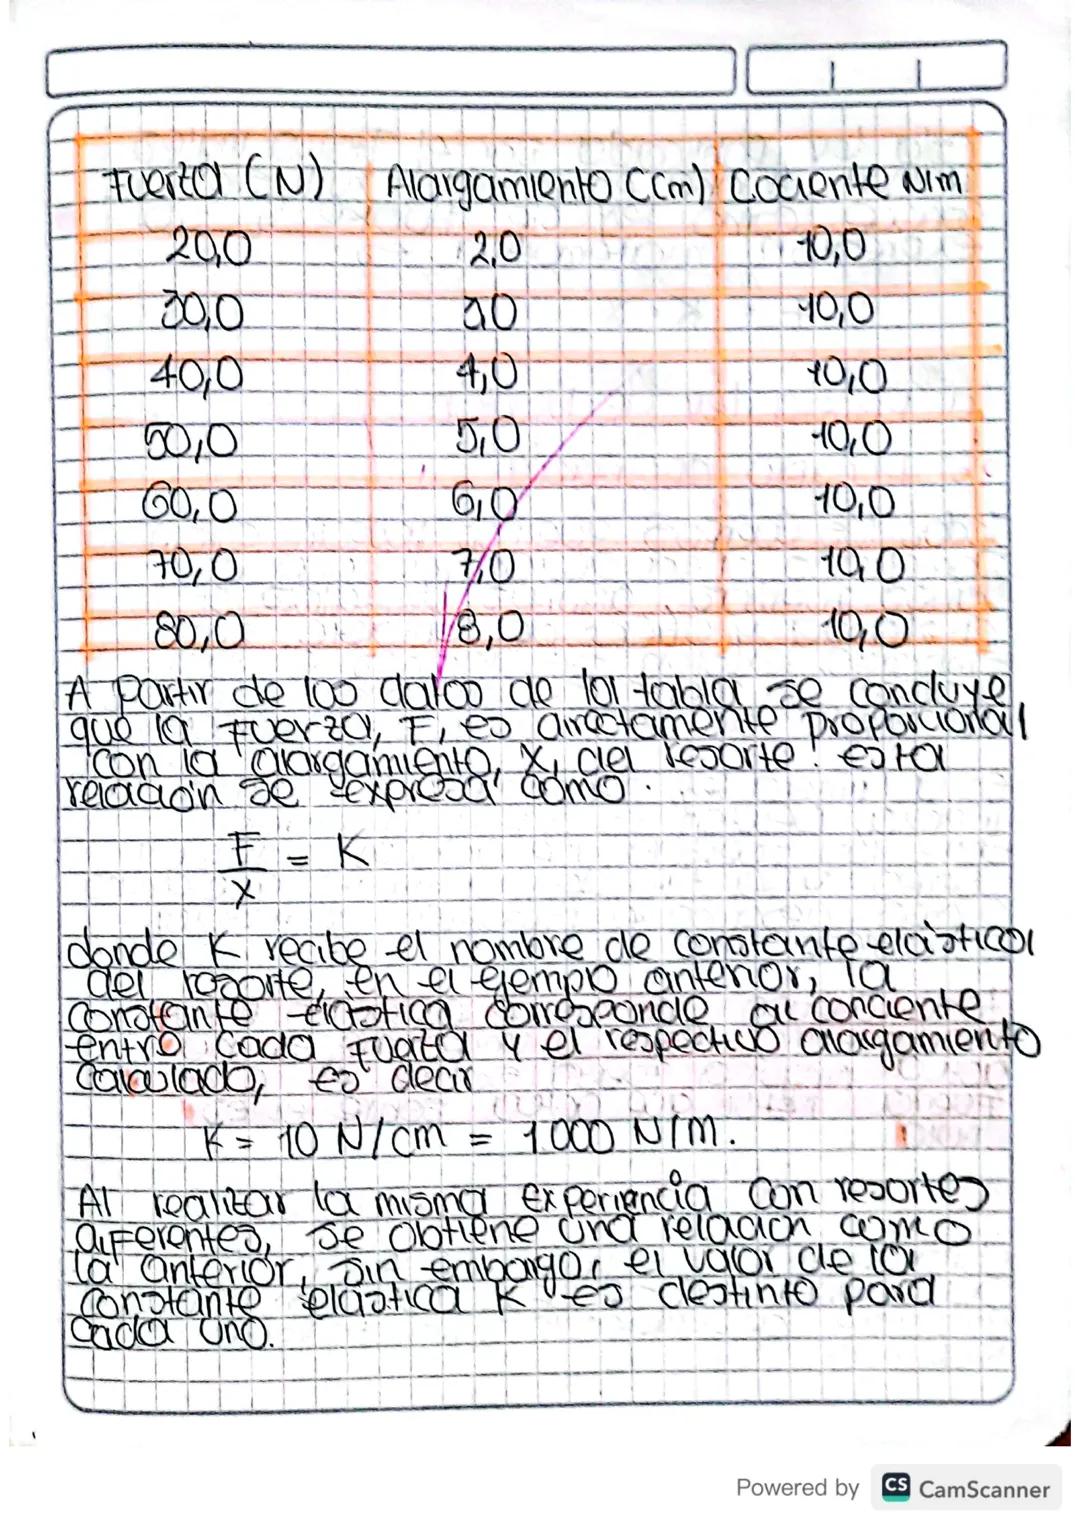 Fuerza (N) Alargamiento (cm) Cociente N/m
20,0 2,0 10,0
30,0 3,0 10,0
40,0 4,0 10,0
50,0 5,0 10,0
60,0 6,0 10,0
70,0 7,0 10,0
80,0 8,0 10,0
A partir de los datos de la tabla se concluye
que la fuerza, F, es directamente proporcional
con la alargamiento, x, del resorte. esta
relación se expresa como.
F/x = K
donde K recibe el nombre de constante elástica
del resorte, en el ejemplo anterior, la
constante elástica corresponde al conciente
entre cada fuerza y el respectivo alargamiento
calculado, es decir
K = 10 N/cm = 1.000 N/m.
Al realizar la misma experiencia con resortes
diferentes, se obtiene una relación como
la anterior, sin embargo, el valor de la
constante elástica K es destinto para
cada uno.
Powered by CS CamScanner